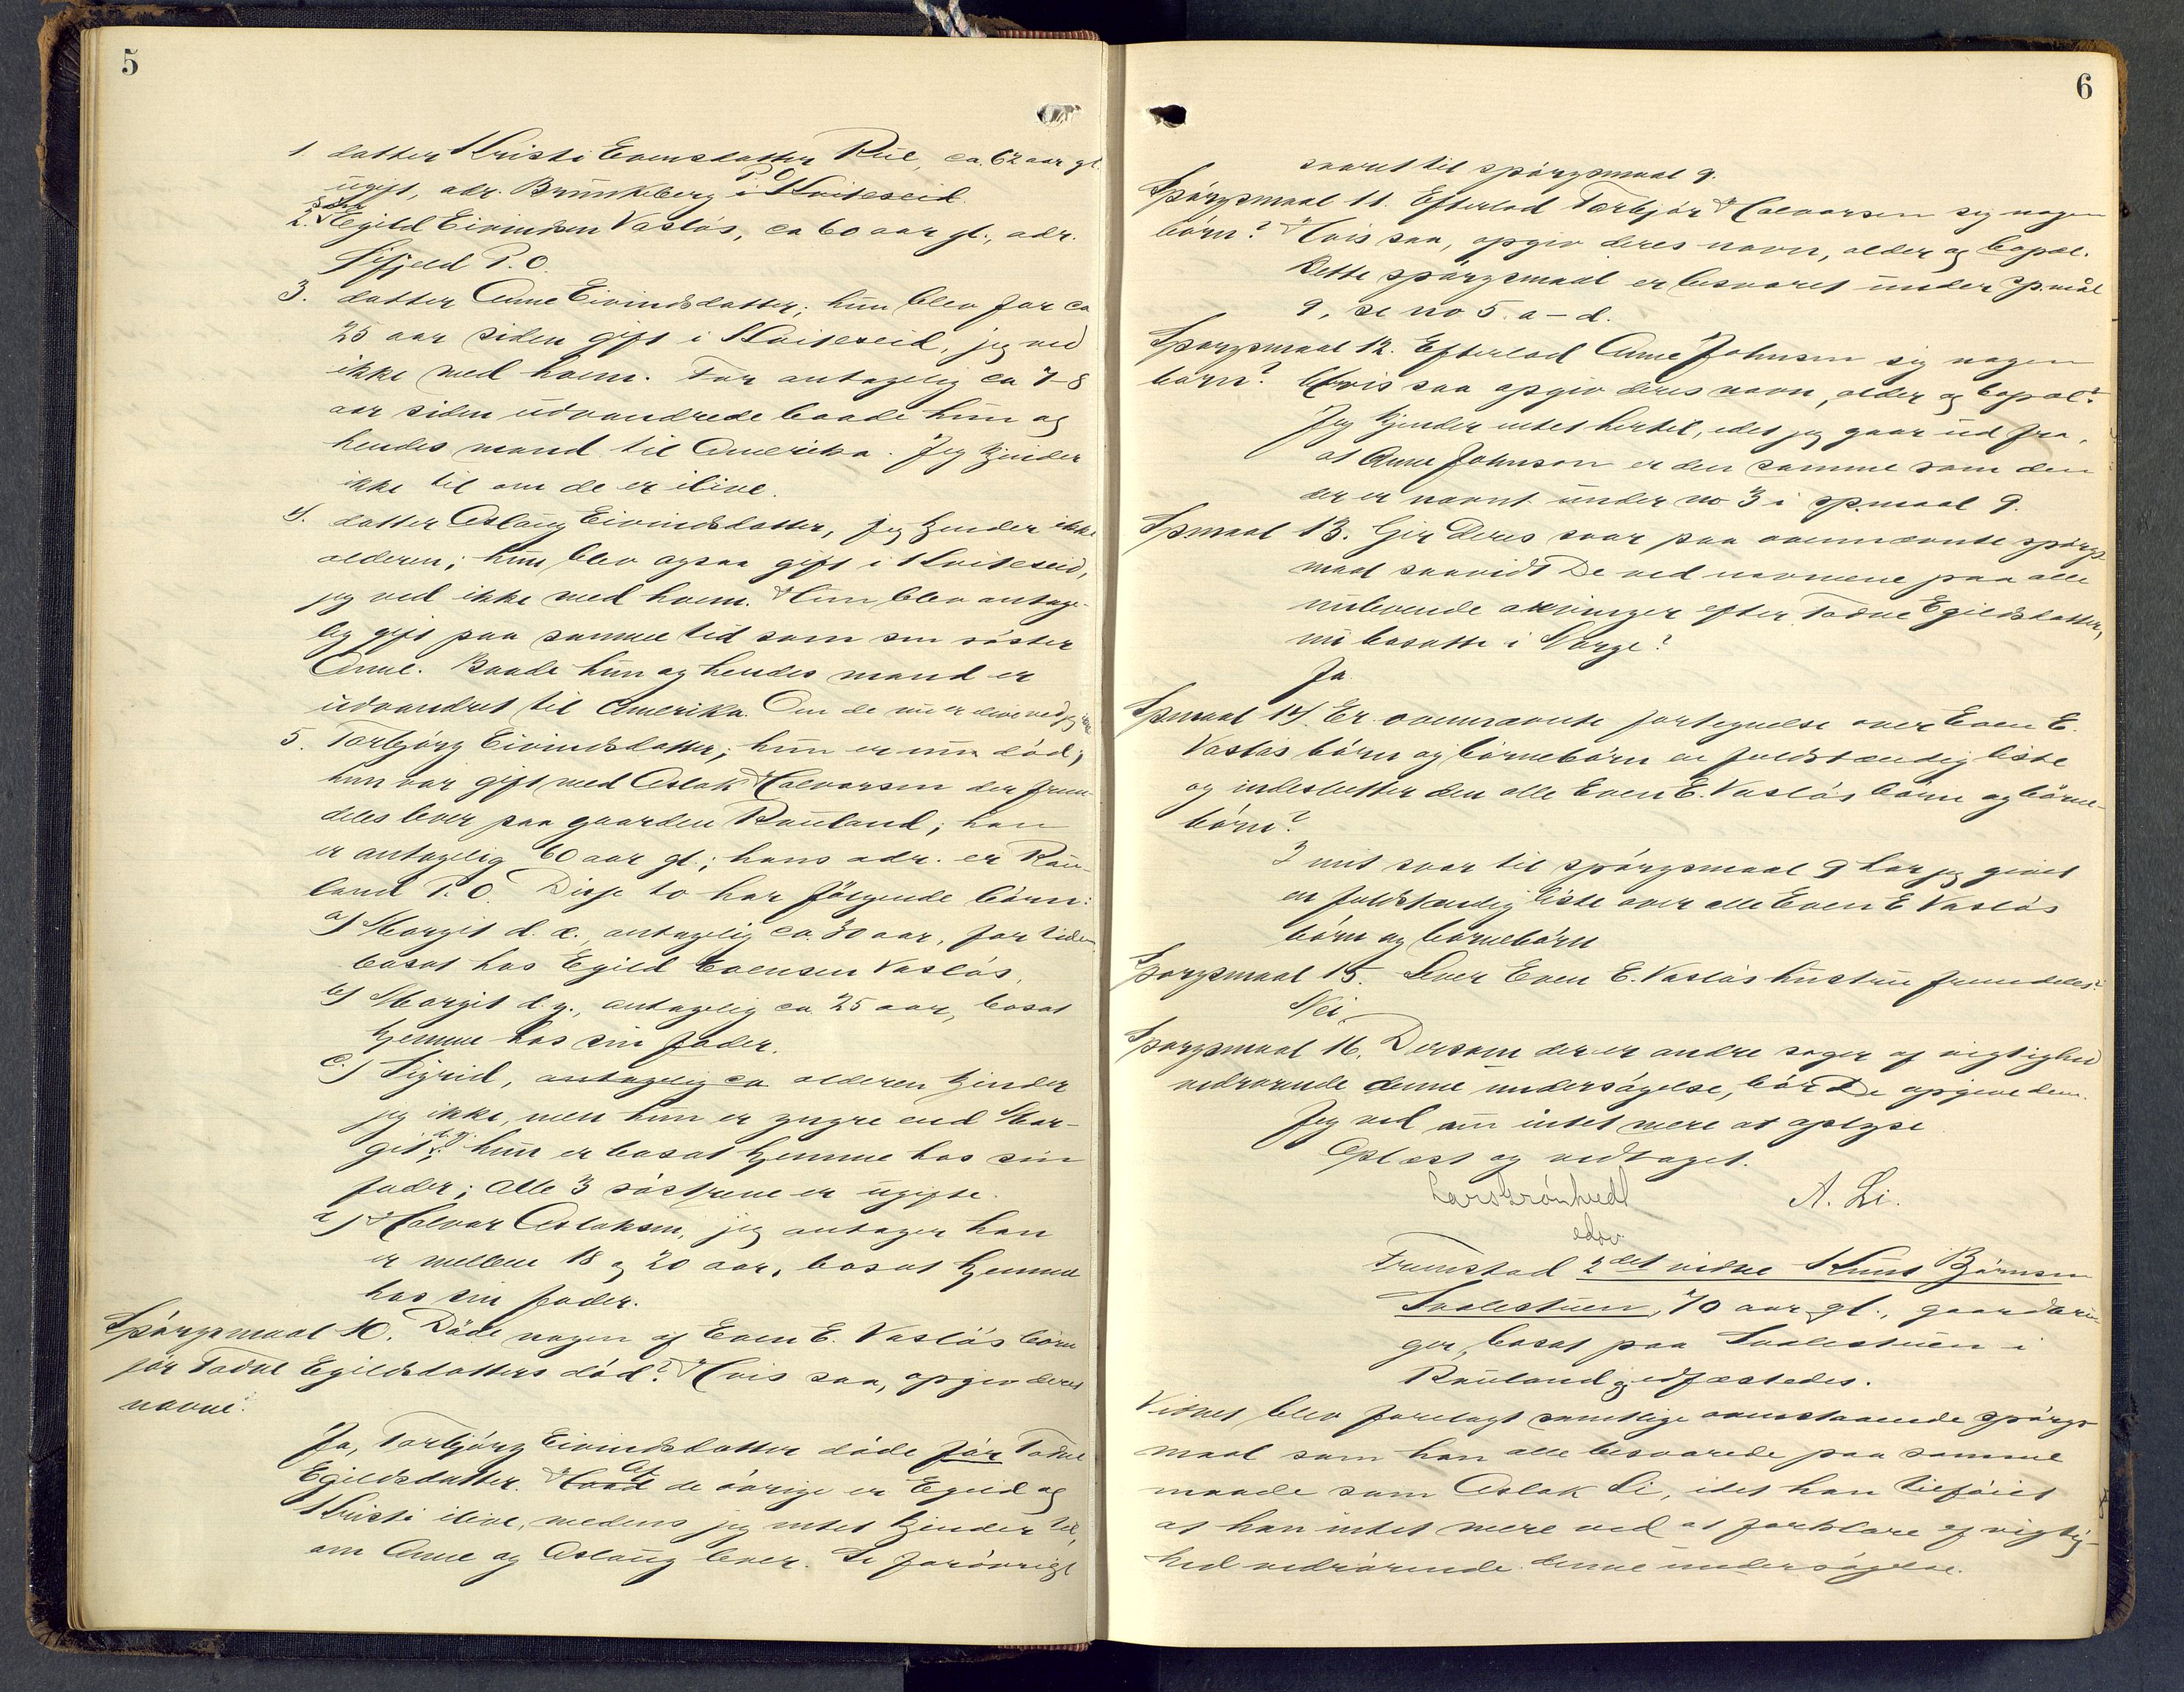 5
1. datter Kristi Evensdatter Rue, ca. 62 aar gl.
ugift, adr. Brunkeberg P.O. i Kviteseid.
2. søn Egild Eivindsen Vasløs, ca 60 aar gl., adr.
Lifjeld P.O.
3. datter Anne Eivindsdatter; hun blev for ca
25 aar siden gift i Kviteseid, jeg ved
ikke med hvem. For antagelig ca 7-8
aar siden udvandrede baade hun og
hendes mand til Amerika. Jeg kjender
ikke til om de er ilive.
4. datter Aslaug Eivindsdatter, jeg kjender ikke
alderen; hun blev ogsaa gift i Kviteseid,
jeg ved ikke med hvem. Hun blev antage-
lig gift paa samme tid som sin søster
Anne. Baade hun og hendes mand er
udvandret til Amerika. Om de nu er ilive ved jeg ikke
5. Torbjørg Eivindsdatter; hun er nu død;
hun var gift med Aslak Halvorsen der frem-
deles lever paa gaarden Rauland; han
er antagelig 60 aar gl.; hans adr. er Rau-
land P.O. Disse to har følgende børn:
a) Margit d. æ., antagelig ca. 30 aar, for tiden
bosat hos Egild Evensen Vasløs,
b) Margit d. y., antagelig ca 25 aar, bosat
hjemme hos sin fader.
c.) Sigrid, antagelig ca alderen kjender
jeg ikke, men hun er yngre end Mar-
git d. y.; hun er bosat hjemme hos sin
fader; alle 3 søstrene er ugifte.
d) Halvor Aslaksen, jeg antager han
er mellem 18 og 20 aar, bosat hjemme
hos sin fader.
Spørgsmaal 10. Døde nogen af Even E. Vasløs børn
før Todne Egildsdatters død? Hvis saa, opgiv deres
navne.
Ja, Torbjørg Eivindsdatter døde før Todne
Egildsdatter. Hvad Af de øvrige er Egild og
Kristi ilive, medens jeg intet kjender til,
om Anne og Aslaug lever. Se forøvrigt
6
svaret til spørgsmaal 9.
Spørgsmaal 11. Efterlod Torbjør Halvorsen sig nogen
børn? Hvis saa, opgiv deres navn, alder og bopæl.
Dette spørgsmaal er besvaret under sp.mål
9, se no 5. a-d.
Spørgsmaal 12. Efterlod Anne Johnson sig nogen
børn? Hvis saa opgiv deres navn, alder og bopæl?
Jeg kjender intet hertil, idet jeg gaar ud fra,
at Anne Johnson er den samme som den
der er nævnt under no 3 i sp.maal 9.
Spmaal 13. Gir Deres svar paa ovennævnte spørgs-
maal saavidt De ved navnene paa alle
nulevende arvinger efter Todne Egildsdatter,
nu bosatte i Norge?
Ja.
Spmaal 14. Er ovennævnte fortegnelse over Even E.
Vasløs børn og børnebørn en fuldstændig liste
og indeslutter den alle Even E. Vasløs børn og børne-
børn?
I mit svar til spørgsmaal 9 har jeg givet
en fuldstændig liste over alle Even E Vasløs
børn og børnebørn
Spørgsmaal 15. Lever Even E. Vasløs hustru fremdeles?
Nei.
Spørgsmaal 16. Dersom der er andre sager af vigtighed
vedrørende denne undersøgelse, bør De opgive dem.
Jeg ved nu intet mere at oplyse
Oplæst og vedtaget.
A. Li.
edsv.
Fremstod 2det vidne Knut Bjørnsen
Svalestuen, 70 aar gl., gaardbru-
ger, bosat paa Svalestuen i
Rauland edfæstedes.
Vidnet blev forelagt samtlige ovenstaaende spørgs-
maal som han alle besvarede paa samme
maade som Aslak Li, idet han tilføiet
at han intet mere ved at forklare af vigtig-
hed vedrørende denne undersøgelse.